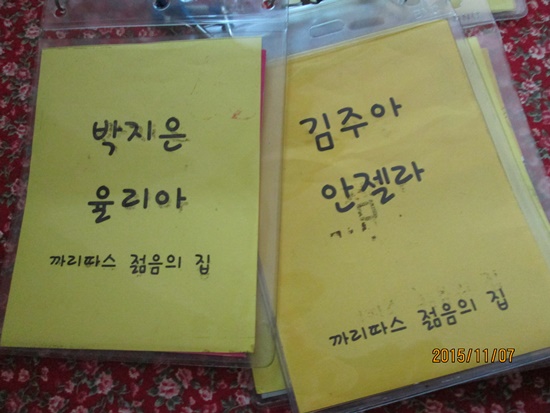 박지은
율리아
까리따스 젊음의 집
김주아
안젤라
까리따스 젊음의 집
2015/11/07